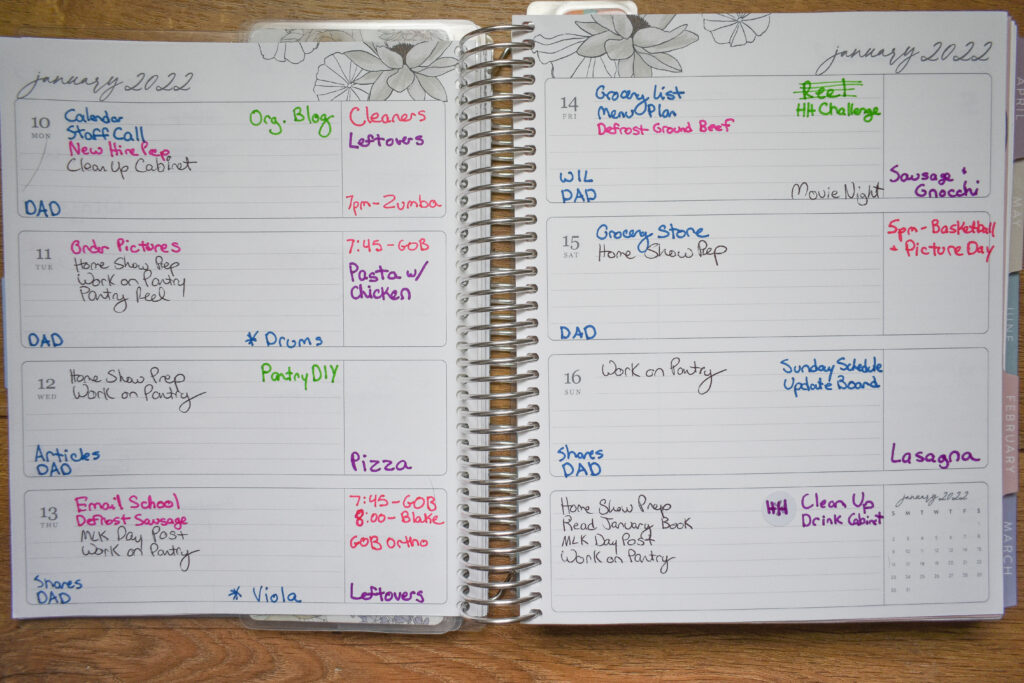 january 2022
10
MON
Calendar
Staff Call
New Hire Prep
Clean Up Cabinet
DAD
Org. Blog
Cleaners
Leftovers
7pm-Zumba
11
TUE
Order Pictures
Home Show Prep
Work on Pantry
Pantry Reel
DAD
* Drums
7:45-GOB
Pasta w/
Chicken
12
WED
Home Show Prep
Work on Pantry
Articles
DAD
Pantry DIY
Pizza
13
THU
Email School
Defrost Sausage
MLK Day Post
Work on Pantry
Shares
DAD
* Viola
7:45-GOB
8:00-Blake
GOB Ortho
Leftovers
january 2022
14
FRI
Grocery List
Menu Plan
Defrost Ground Beef
WIL
DAD
Reel
HH Challenge
Movie Night
Sausage +
Gnocchi
15
SAT
Grocery Store
Home Show Prep
DAD
5pm-Basketball
+ Picture Day
16
SUN
Work on Pantry
Shares
DAD
Sunday Schedule
Update Board
Lasagna
Home Show Prep
Read January Book
MLK Day Post
Work on Pantry
HH
Clean Up
Drink Cabinet
january 2022
S M T W T F S
1
2 3 4 5 6 7 8
9 10 11 12 13 14 15
16 17 18 19 20 21 22
23 24 25 26 27 28 29
30 31
APRIL
MAY
JUNE
FEBRUARY
MARCH